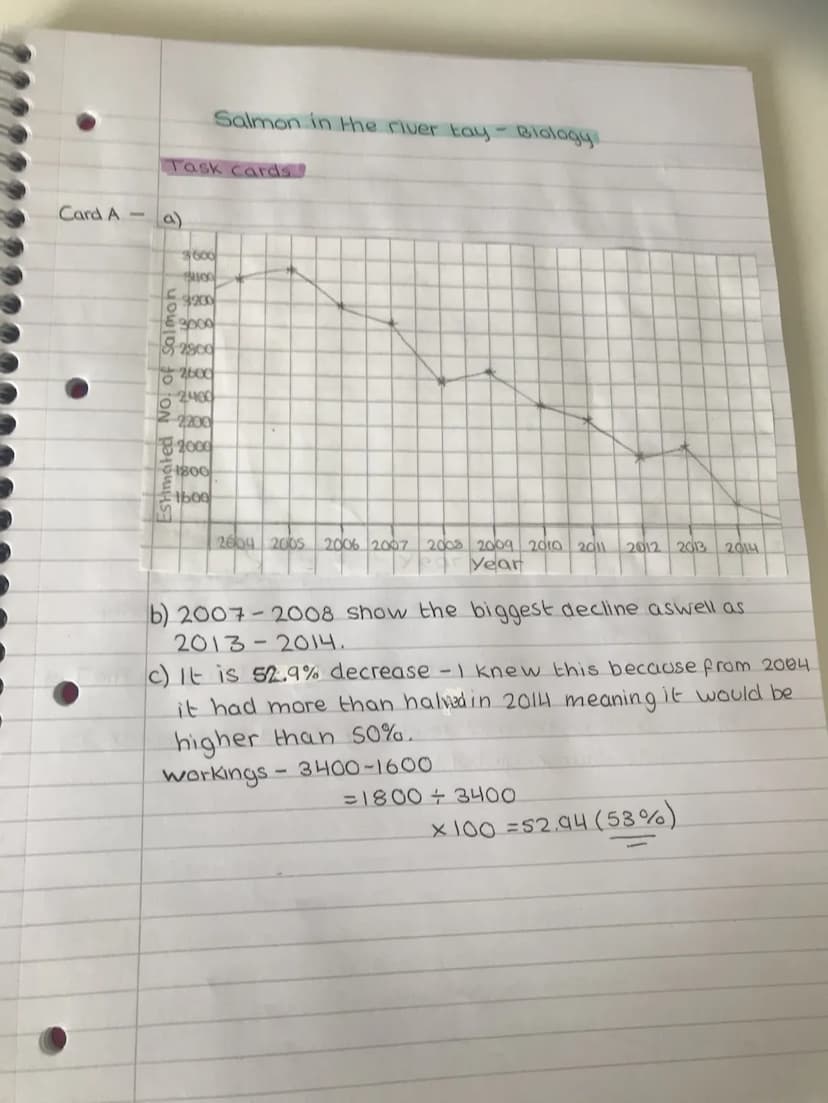 Salmon in the river tay - Biology
Task cards
Card A - a)
3600
3400
3200
3000
2800
2600
2400
2200
2000
1800
1600
Estimated No. of Salmon
2004 2005 2006 2007 2008 2009 2010 2011 2012 2013 2014
Year
b) 2007 - 2008 show the biggest decline aswell as
2013 - 2014.
c) It is 52.9% decrease - I knew this because from 2004
it had more than halved in 2014 meaning it would be
higher than 50%.
workings - 3400-1600
=1800 ÷ 3400
x 100 = 52.94 (53%)